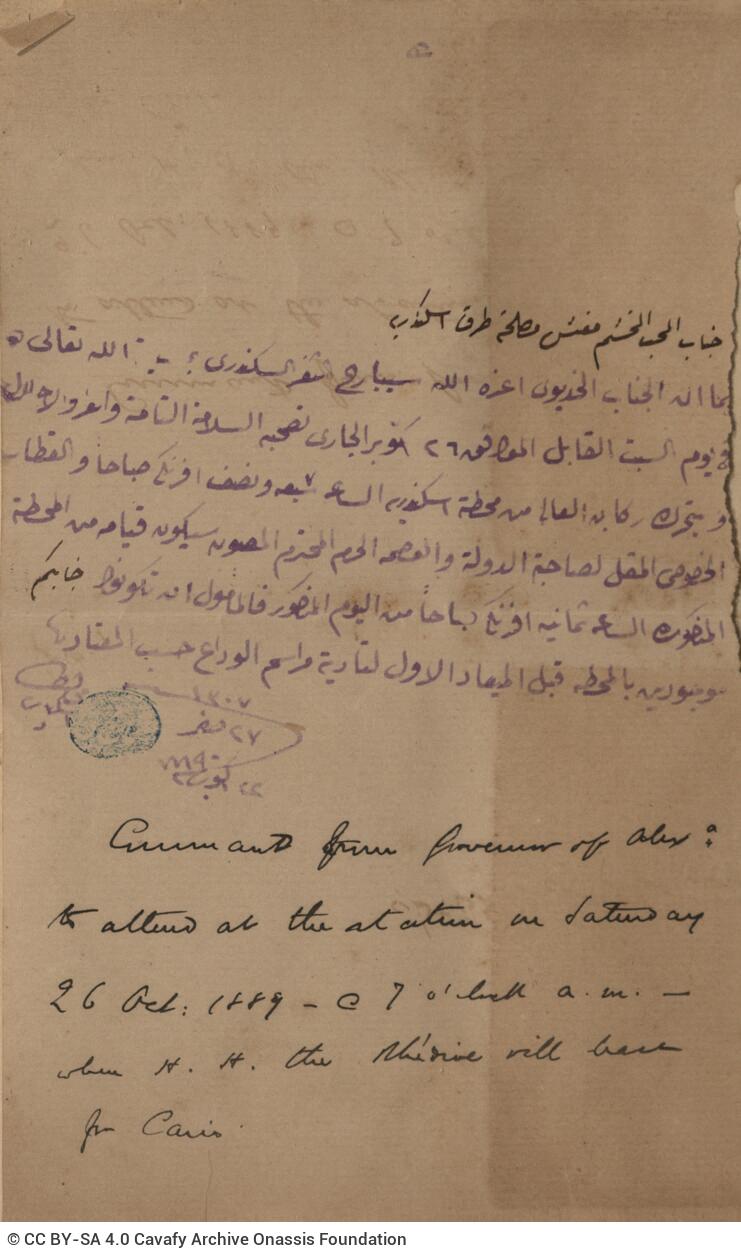 جناب المحب المخشم مفتش مصلحة طرق اسكندريه
بما ان الجناب الخديوى اعزه الله سيبارح ثغر السكندرى الله تعالى
فى يوم السبت القابل الموافق ٢٦ اكتوبر الجارى تصحبه السلامة التامة والعز والاجلال
ويتحرك ركابه العالى من محطة اسكندريه الساعه سبعه ونصف افرنكى صباحا والقطار
الخصوصى المقل لصاحبة الدولة والعصمه الحرم المحترم المصون سيكون قيامه من المحطة
المذكوره الساعه ثمانيه افرنكى صباحا من اليوم المذكور فالمأمول ان تكونوا جنابكم
موجودين بالمحطه قبل الميعاد الاول لتأدية مراسم الوداع حسب المعتاد
١٣٠٧
٢٧ صفر
٢٢ اكتوبر
Command from Governor of Alexa:
to attend at the station on Saturday
26 Oct: 1889 - @ 7 o'clock a.m. —
when H. H. the Khédive will leave
for Cairo.